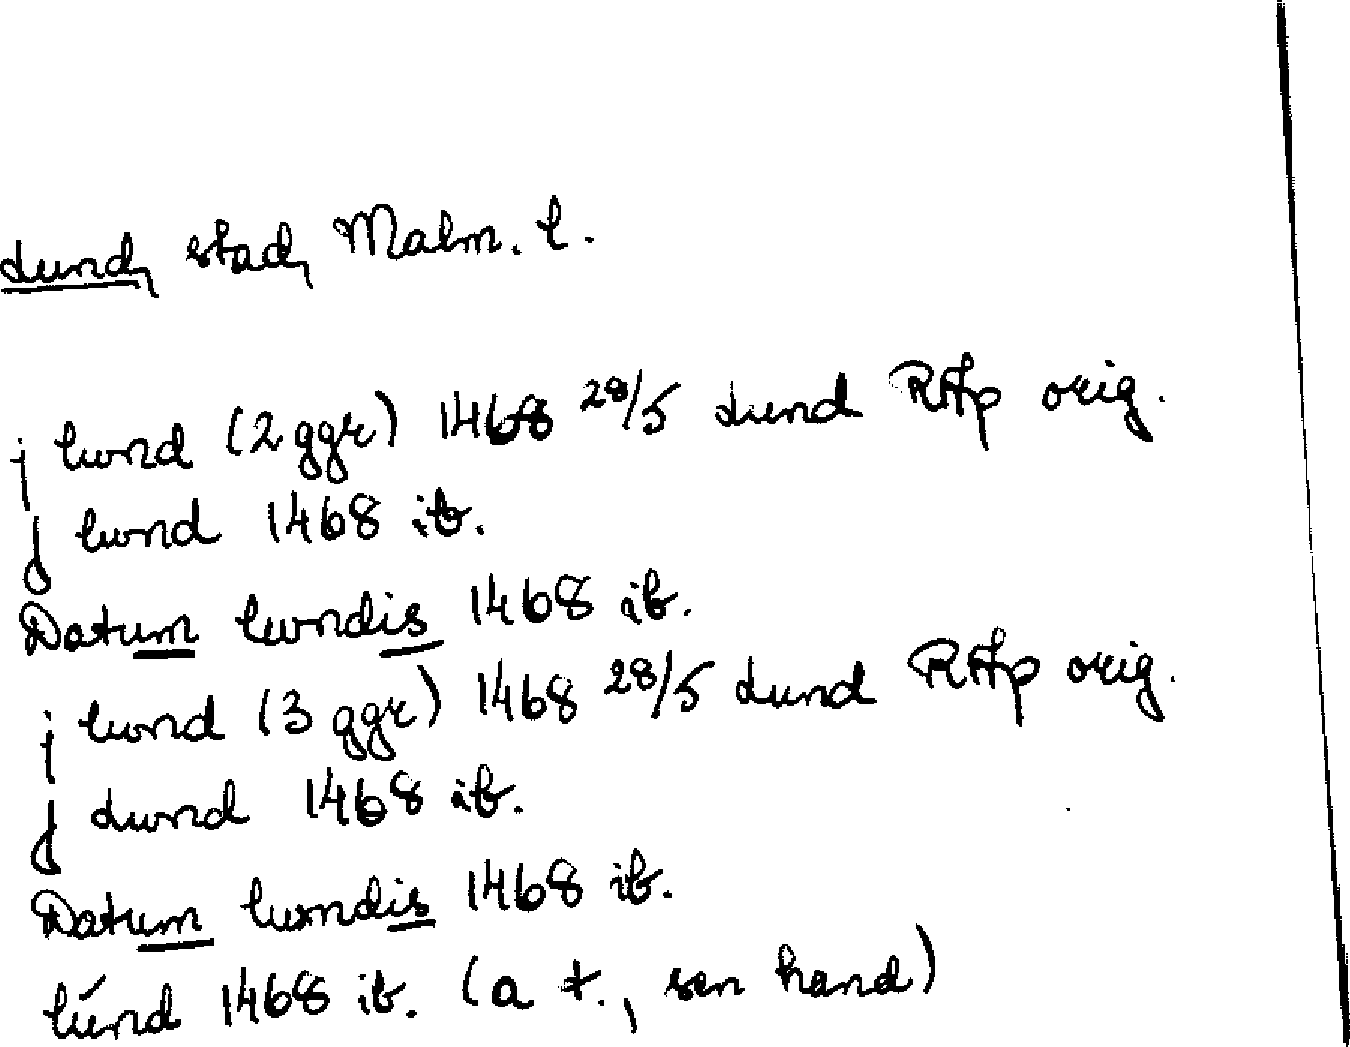 Lund, stad, Malm. l.
j lwnd (2 ggr) 1468 28/5 Lund RAp orig.
J lwnd 1468 ib.
Datum lwndis 1468 ib.
j lwnd (3 ggr) 1468 28/5 Lund RAp orig.
J Lwnd 1468 ib.
Datum lwndis 1468 ib.
lúnd 1468 ib. (a t., sen hand)